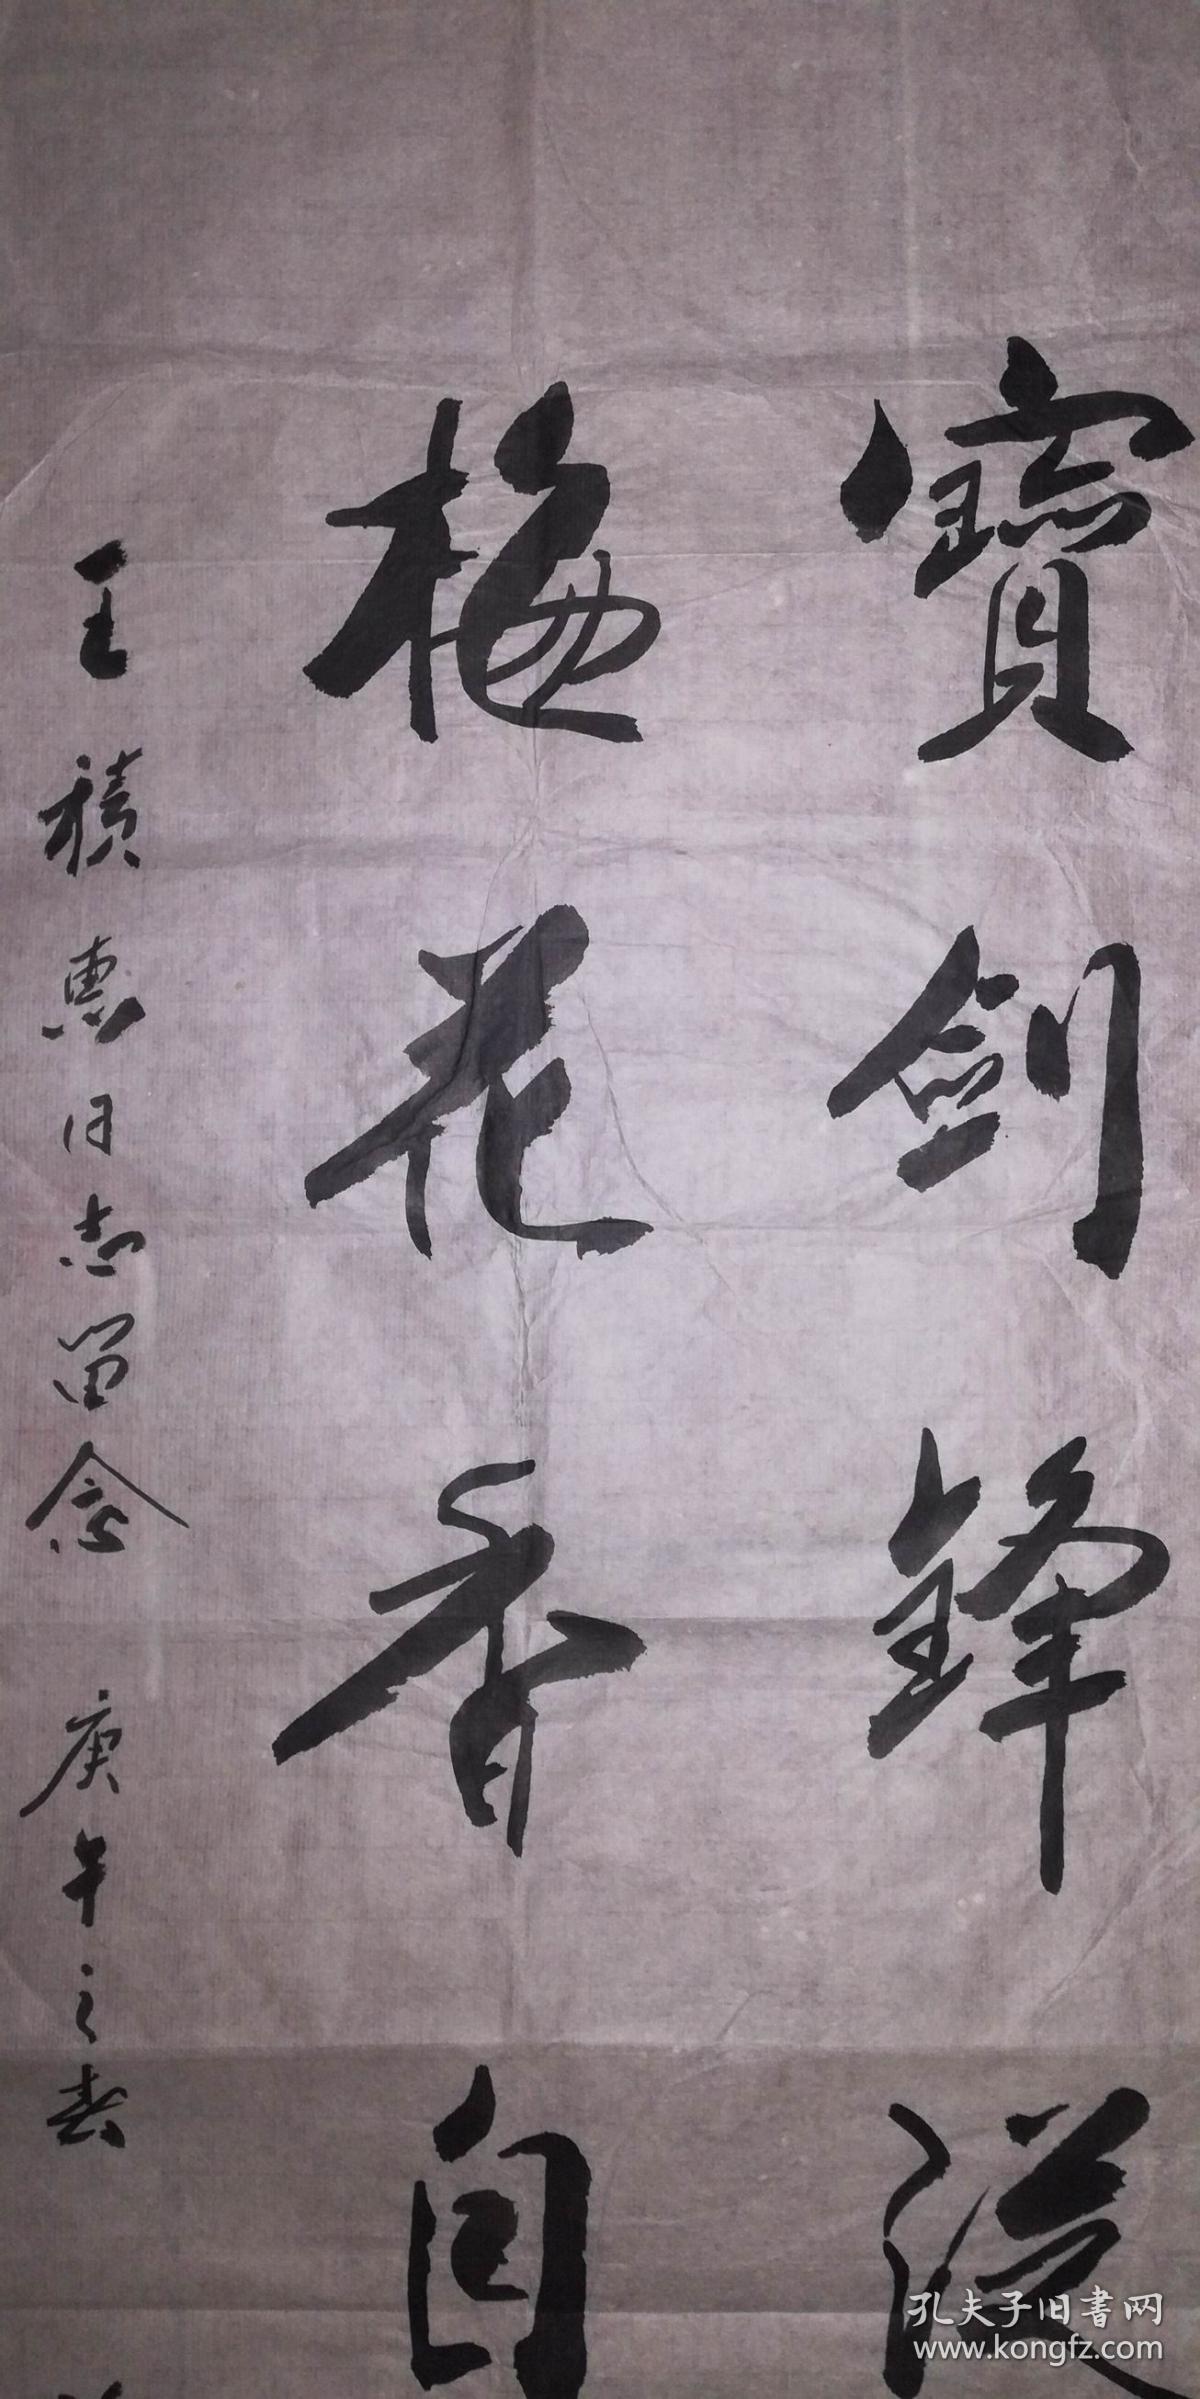 寶劍鋒從
梅花香自
王積惠同志留念 庚午之春
孔夫子旧書网
www.kongfz.com